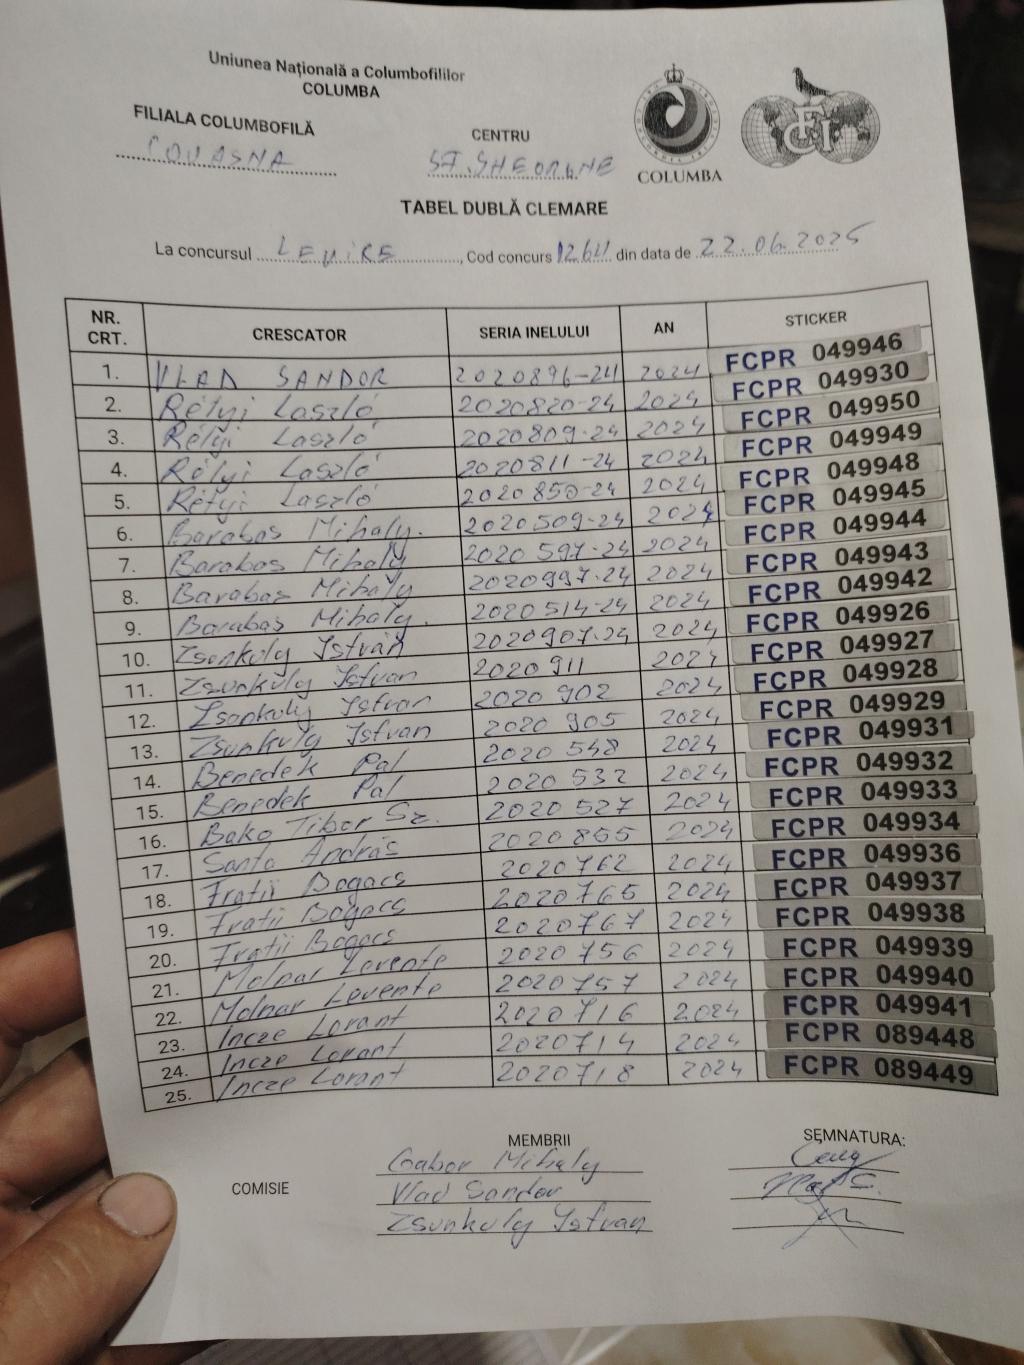 Uniunea Națională a Columbofililor
COLUMBA
FILIALA COLUMBOFILĂ
COVASNA
CENTRU
SF. GHEORGHE
COLUMBA
FCI
TABEL DUBLĂ CLEMARE
La concursul LEMIRE, Cod concurs 1264 din data de 22.06.2025
NR. CRT. CRESCATOR SERIA INELULUI AN STICKER
1. VLAD SANDOR 2020896-24 2024 FCPR 049946
2. Rétyi László 2020820-24 2024 FCPR 049930
3. Rétyi László 2020809-24 2024 FCPR 049950
4. Rétyi László 2020811-24 2024 FCPR 049949
5. Rétyi László 2020850-24 2024 FCPR 049948
6. Barabas Mihaly. 2020509-24 2024 FCPR 049945
7. Barabas Mihaly 2020597-24 2024 FCPR 049944
8. Barabas Mihaly 2020997-24 2024 FCPR 049943
9. Barabas Mihaly. 2020514-24 2024 FCPR 049942
10. Zsunkuly Istvan 2020907-24 2024 FCPR 049926
11. Zsunkuly Istvan 2020911 2024 FCPR 049927
12. Zsunkuly Istvan 2020902 2024 FCPR 049928
13. Zsunkuly Istvan 2020905 2024 FCPR 049929
14. Benedek Pal 2020548 2024 FCPR 049931
15. Benedek Pal 2020532 2024 FCPR 049932
16. Bako Tibor Sz. 2020527 2024 FCPR 049933
17. Santa András 2020855 2024 FCPR 049934
18. Fratii Bogacs 2020762 2024 FCPR 049936
19. Fratii Bogacs 2020765 2024 FCPR 049937
20. Fratii Bogacs 2020767 2024 FCPR 049938
21. Molnar Levente 2020756 2024 FCPR 049939
22. Molnar Levente 2020757 2024 FCPR 049940
23. Incze Lorant 2020716 2024 FCPR 049941
24. Incze Lorant 2020714 2024 FCPR 089448
25. Incze Lorant 2020718 2024 FCPR 089449
MEMBRII SEMNATURA:
Gabor Mihaly
COMISIE Vlad Sandor
Zsunkuly Istvan